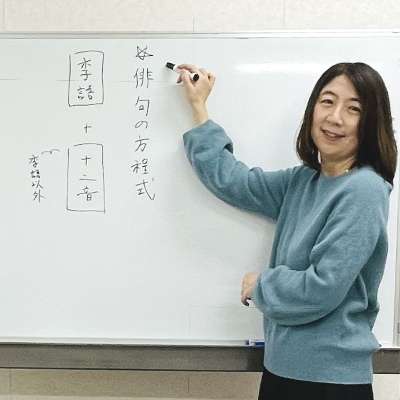 ☆俳句の方程式
季語
+
十二音
季語以外